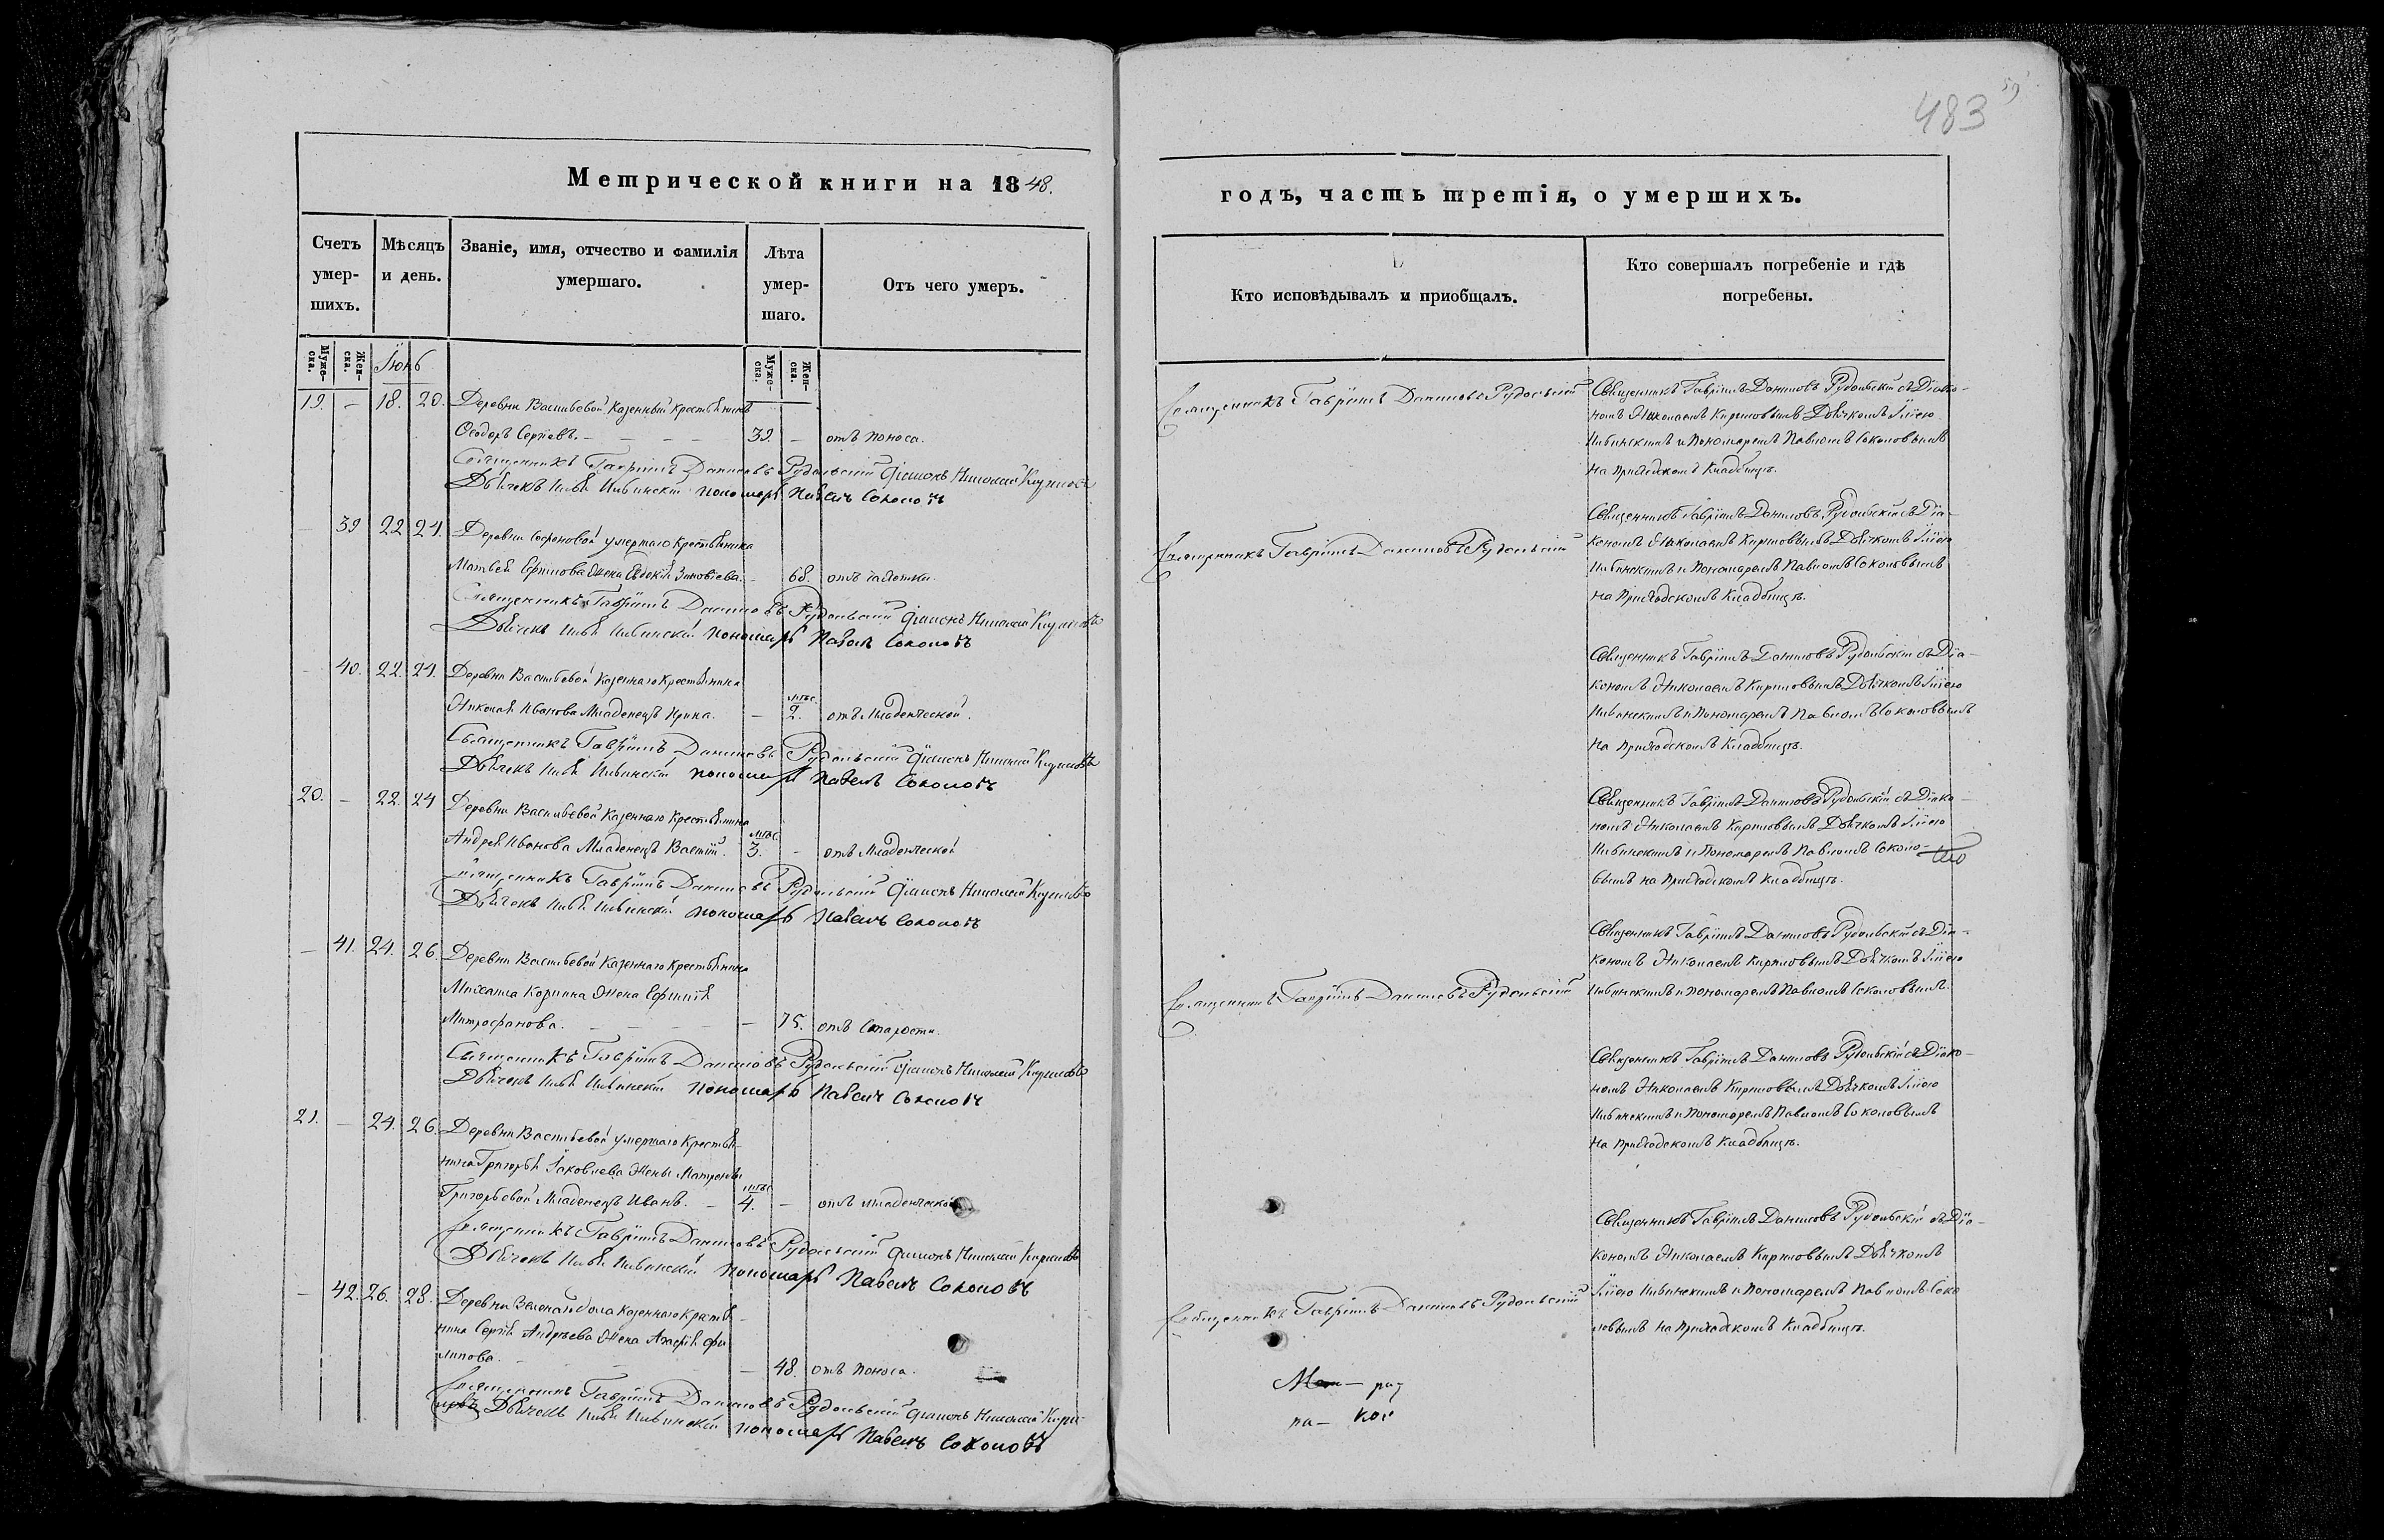 483
Метрической книги на 1848.
годъ, часть третія, о умершихъ.
Счетъ умер-шихъ.
Мѣсяцъ и день.
Званіе, имя, отчество и фамилія умершаго.
Лѣта умер-шаго.
Отъ чего умеръ.
Кто исповѣдывалъ и приобщалъ.
Кто совершалъ погребеніе и гдѣ погребены.
Муже-ска.
Жен-ска.
Муже-ска.
Жен-ска.
Іюнь
19. – 18. 20. Деревни Васильевой Казенный Крестьянинъ
Ѳеодоръ Сергіевъ. – 39. – отъ поноса.
Священникъ Гавріилъ Даниловъ Рудольскій Діаконъ Николай Кириловъ
Дьячекъ Илья Ивинскій пономарь Павелъ Соколовъ
Священникъ Гавріилъ Даниловъ Рудольскій
Священникъ Гавріилъ Даниловъ Рудольскій съ Діако-
номъ Николаемъ Кириловымъ Дьячкомъ Ильею
Ивинскимъ и Пономаремъ Павломъ Соколовымъ
на Приходскомъ Кладбищѣ.
– 39 22 24. Деревни умершаго Крестьянина
Матвея жена Евдокія Зиновіева. – 68. отъ чахотки.
Священникъ Гавріилъ Даниловъ Рудольскій Діаконъ Николай Кириловъ
Дьячекъ Илья Ивинскій пономарь Павелъ Соколовъ
Священникъ Гавріилъ Даниловъ Рудольскій
Священникъ Гавріилъ Даниловъ Рудольскій съ Діа-
кономъ Николаемъ Кириловымъ Дьячкомъ Ильею
Ивинскимъ и Пономаремъ Павломъ Соколовымъ
на Приходскомъ Кладбищѣ.
– 40. 22. 24. Деревни Васильевой Казеннаго Крестьянина
Николая Иванова Младенецъ Ирина. – мѣс. 2. отъ Младенческой.
Священникъ Гавріилъ Даниловъ Рудольскій Діаконъ Николай Кириловъ
Дьячекъ Илья Ивинскій пономарь Павелъ Соколовъ
Священникъ Гавріилъ Даниловъ Рудольскій съ Діа-
кономъ Николаемъ Кириловымъ Дьячкомъ Ильею
Ивинскимъ и Пономаремъ Павломъ Соколовымъ
на Приходскомъ Кладбищѣ.
20. – 22. 24 Деревни Васильевой Казеннаго Крестьянина
Андрея Иванова Младенецъ Василій. мѣс. 3. – отъ Младенческой
Священникъ Гавріилъ Даниловъ Рудольскій Діаконъ Николай Кириловъ
Дьячекъ Илья Ивинскій пономарь Павелъ Соколовъ
Священникъ Гавріилъ Даниловъ Рудольскій съ Діако-
номъ Николаемъ Кириловымъ Дьячкомъ Ильею
Ивинскимъ и Пономаремъ Павломъ Соколо-
вымъ на Приходскомъ Кладбищѣ.
– 41. 24. 26. Деревни Васильевой Казеннаго Крестьянина
Михаила жена
Митрофанова. – 75. отъ Старости.
Священникъ Гавріилъ Даниловъ Рудольскій Діаконъ Николай Кириловъ
Дьячекъ Илья Ивинскій пономарь Павелъ Соколовъ
Священникъ Гавріилъ Даниловъ Рудольскій
Священникъ Гавріилъ Даниловъ Рудольскій съ Діа-
кономъ Николаемъ Кириловымъ Дьячкомъ Ильею
Ивинскимъ и Пономаремъ Павломъ Соколовымъ.
21. – 24. 26. Деревни Васильевой умершаго Крестья-
нина Григорья Яковлева жены Матроны
Григорьевой Младенецъ Иванъ. – мѣс. 4. – отъ младенческой
Священникъ Гавріилъ Даниловъ Рудольскій Діаконъ Николай Кириловъ
Дьячекъ Илья Ивинскій пономарь Павелъ Соколовъ
Священникъ Гавріилъ Даниловъ Рудольскій съ Діако-
номъ Николаемъ Кириловымъ Дьячкомъ Ильею
Ивинскимъ и Пономаремъ Павломъ Соколовымъ
на Приходскомъ Кладбищѣ.
– 42. 26. 28. Деревни Казеннаго Крестья-
нина Сергія Андреева жена Агафія Фи-
липова. – 48. отъ поноса.
Священникъ Гавріилъ Даниловъ Рудольскій Діаконъ Николай Кири-
ловъ Дьячекъ Илья Ивинскій пономарь Павелъ Соколовъ
Священникъ Гавріилъ Даниловъ Рудольскій
Священникъ Гавріилъ Даниловъ Рудольскій съ Діа-
кономъ Николаемъ Кириловымъ Дьячкомъ
Ильею Ивинскимъ и Пономаремъ Павломъ Соко
ловымъ на Приходскомъ Кладбищѣ.